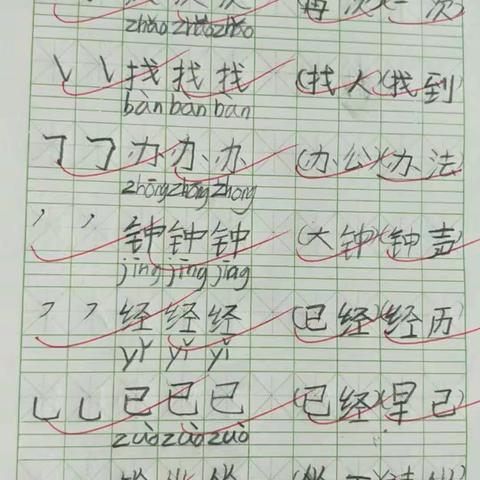 再次 一次
zhǎo zhǎo zhǎo
找 找 找 (找人)(找到)
bàn bàn bàn
办 办 办 (办公)(办法)
zhōng zhōng zhōng
钟 钟 钟 (大钟)(钟声)
jīng jīng jīng
经 经 经 (已经)(经历)
yǐ yǐ yǐ
已 已 已 (已经)(早已)
zuò zuò zuò